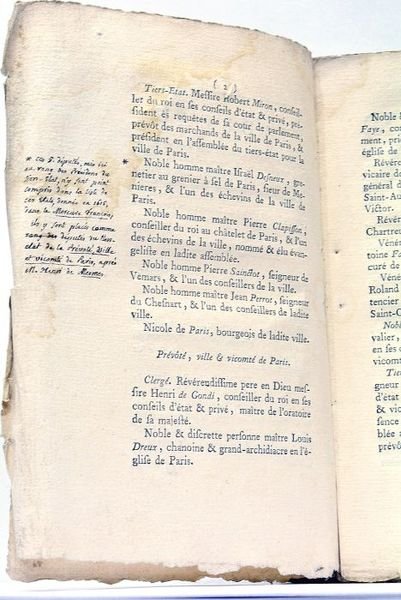 ( 2 )
Tiers-Etat. Messire Robert Miron, conseil-
ler du roi en ses conseils d'état & privé, pré-
sident ès requêtes de sa cour de parlement,
prévôt des marchands de la ville de Paris, &
président en l'assemblée du tiers-état pour la
ville de Paris.
* Noble homme maître Israël Desneux, gre-
netier au grenier à sel de Paris, sieur de Mé-
nieres, & l'un des échevins de la ville de
Paris.
Noble homme maître Pierre Clapisson,
conseiller du roi au châtelet de Paris, & l'un
des échevins de la ville, nommé & élu évan-
geliste en ladite assemblée.
Noble homme Pierre Sainctot, seigneur de
Vemars, & l'un des conseillers de la ville.
Noble homme maître Jean Perrot, seigneur
du Chesnart, & l'un des conseillers de ladite
ville.
Nicole de Paris, bourgeois de ladite ville.
Prévôté, ville & vicomté de Paris.
Clergé. Révérendissime pere en Dieu mes-
sire Henri de Gondi, conseiller du roi en ses
conseils d'état & privé, maître de l'oratoire
de sa majesté.
Noble & discrette personne maître Louis
Dreux, chanoine & grand-archidiacre en l'é-
glise de Paris.
* ces 5. députés, mis ici
au rang des Président du
tiers-état, n'y sont point
compris dans la liste de
ces Etats, donnée en 1615,
dans le Mercure François,
ils y sont placés comme
rang des députés du tiers
état de la Prévôté, Ville
et vicomté de Paris, après
M. Henri de Mesmes.
Noble
Faye, con
ment, prie
église de
Révére
vicaire de
général d
Saint-Au
Victor.
Révér
Chartreu
Véné
toine Fa
curé de
Véné
Roland
tencier
Saint-G
Nob
valier,
en ses c
vicomté
Tie
gneur
d'état
& vic
sence
blée a
prévô